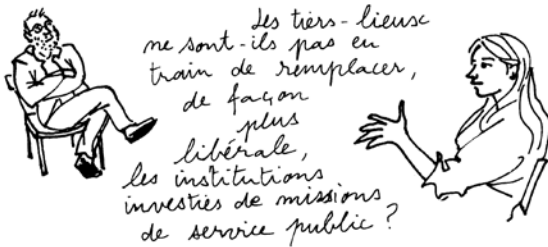 Les tiers-lieux
ne sont-ils pas en
train de remplacer,
de façon
plus
libérale,
les institutions
investies de missions
de service public ?